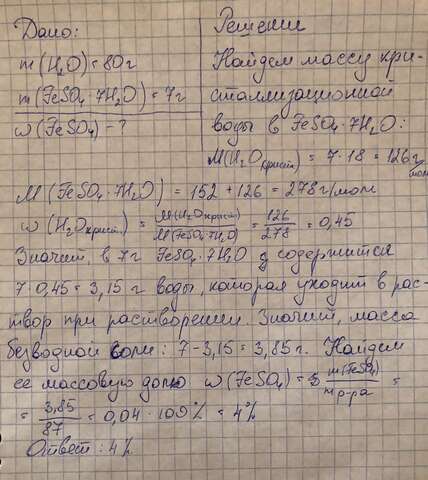 Дано:
m(H₂O) = 80г
m(FeSO₄ · 7H₂O) = 7г
ω(FeSO₄) - ?
Решение
Найдем массу кри-
сталлизационной
воды в FeSO₄ · 7H₂O:
M(H₂O крист.) = 7 · 18 = 126 г/моль
M(FeSO₄ · 7H₂O) = 152 + 126 = 278 г/моль
ω(H₂O крист.) = M(H₂O крист) / M(FeSO₄·7H₂O) = 126 / 278 = 0,45
Значит, в 7 г FeSO₄ · 7H₂O содержится
7 · 0,45 = 3,15 г воды, которая уходит в рас-
твор при растворении. Значит, масса
безводной соли: 7 - 3,15 = 3,85 г. Найдем
ее массовую долю ω(FeSO₄) = m(FeSO₄) / m р-ра =
= 3,85 / 87 = 0,04 · 100% = 4%
Ответ: 4%